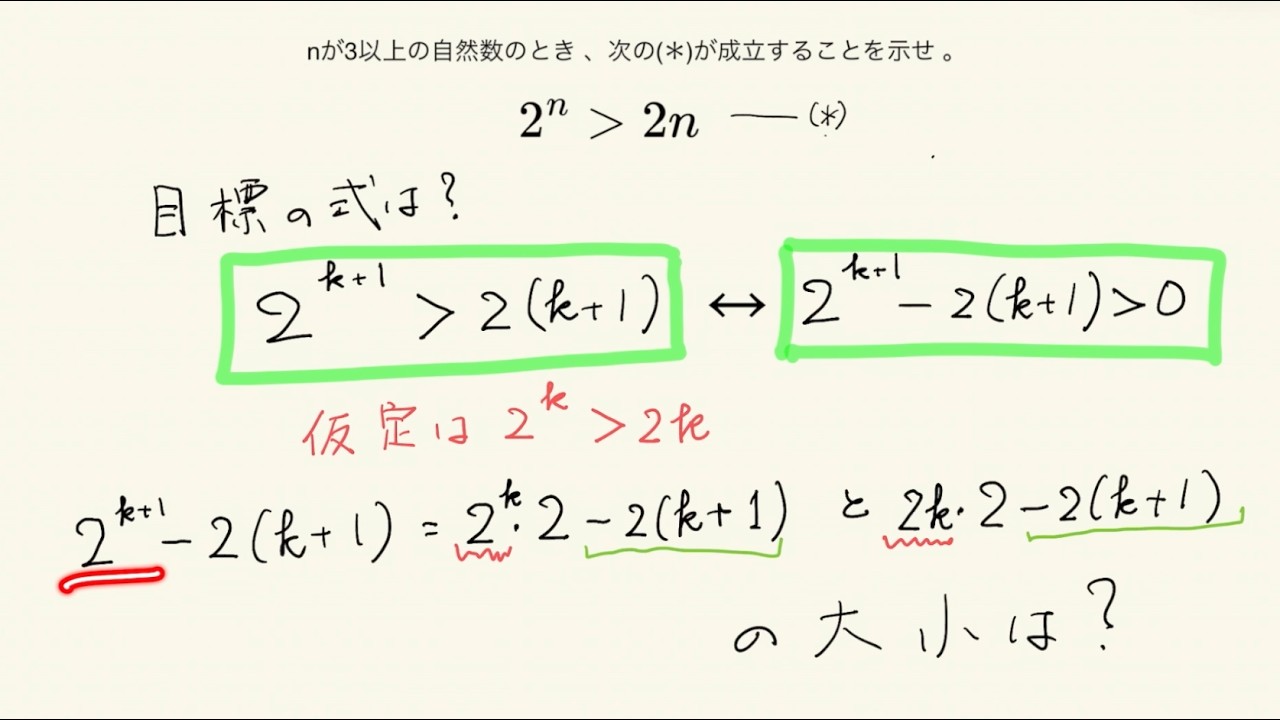 nが3以上の自然数のとき 、次の(＊)が成立することを示せ 。
2^n > 2n ——(*)
目標の式は?
2^{k+1} > 2(k+1) ↔ 2^{k+1} - 2(k+1) > 0
仮定は 2^k > 2k
2^{k+1} - 2(k+1) = 2^k・2 - 2(k+1) と 2k・2 - 2(k+1)
の大小は?